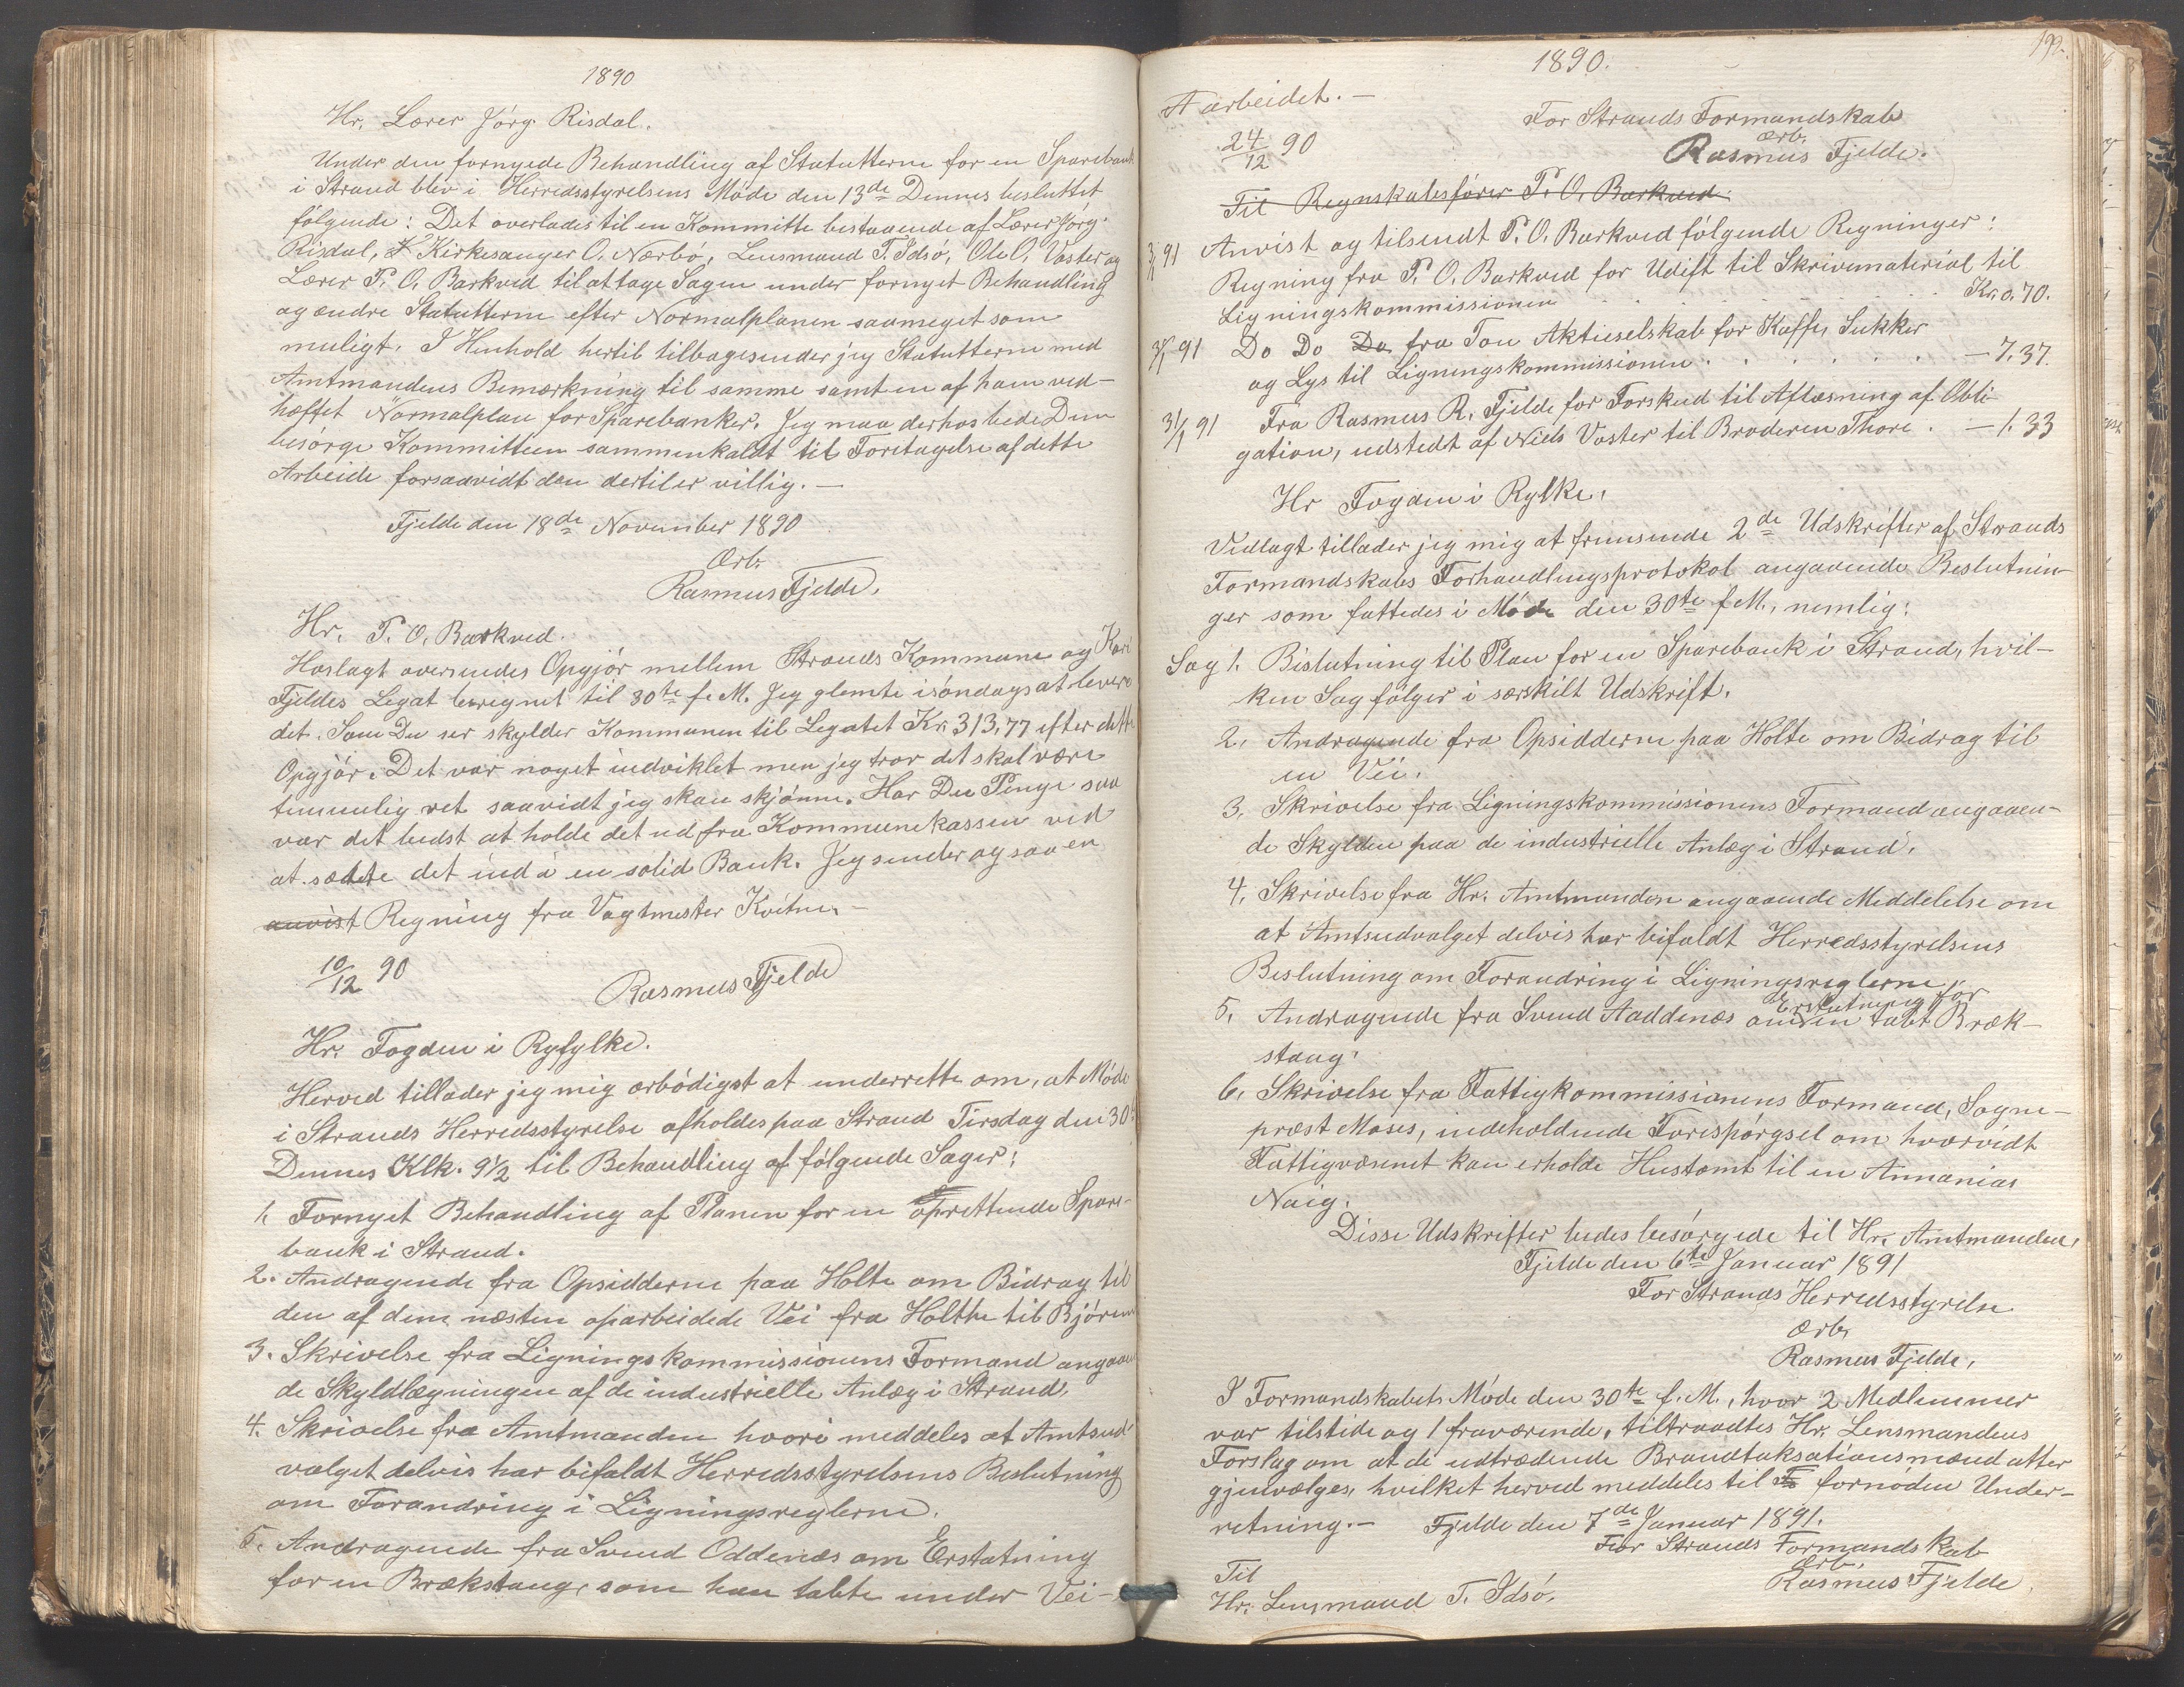 1890
Hr. Lærer Jörg Risdal.
Under den fornyede Behandling af Statutterne for en Sparebank
i Strand blev i Herredsstyrelsens Möde den 13de Dennes besluttet
fölgende: Det overlades til en Kommitte bestaaende af Lærer Jörg
Risdal, Kirkesanger O. Nærbö, Lensmand T. Idsö, Ole O. Voster og
Lærer P. O. Barkved til at tage Sagen under fornyet Behandling
og ændre Statutterne efter Normalplanen saameget som
muligt. I Henhold hertil tilbagesender jeg Statutterne med
Amtmandens Bemærkning til samme samt en af ham ved-
hæftet Normalplan for Sparebanker. Jeg maa derhos bede Dem
besörge Kommitteen sammenkaldt til Foretagelse af dette
Arbeide forsaavidt den dertil er villig. —
Fjelde den 18de November 1890
Ærb.
Rasmus Fjelde.
Hr. P. O. Barkved.
Hoslagt oversendes Opgjör mellem Strands Kommune og Kari
Fjeldes Legat beregnet til 30te f. M. Jeg glemte isöndags at levere
det. Som Du ser skylder Kommunen til Legatet Kr. 313,77 efter dette
Opgjör. Det var noget indviklet men jeg tror det skal være
temmelig ret saavidt jeg kan skjönne. Har Du Penge saa
var det bedst at holde det ud fra Kommunekassen ved
at sætte det ind i en solid Bank. Jeg sender ogsaa en
anvist Regning fra Vagtmester Kvitne. —
10/12 90
Rasmus Fjelde
Hr. Fogden i Ryfylke.
Herved tillader jeg mig ærbödigst at underrette om, at Möde
i Strands Herredsstyrelse afholdes paa Strand Tirsdag den 30te
Dennes Klk. 9½ til Behandling af fölgende Sager:
1. Fornyet Behandling af Planen for en oprettende Spare-
bank i Strand.
2. Andragende fra Opsidderne paa Holte om Bidrag til
den af dem næsten oparbeidede Vei fra Holthe til Björeim
3. Skrivelse fra Ligningskommissionens Formand angaaen
de Skyldlægningen af de industrielle Anlæg i Strand.
4. Skrivelse fra Amtmanden hvori meddeles at Amtsud
valget delvis har bifaldt Herredsstyrelsens Beslutning
om Forandring i Ligningsreglerne.
5. Andragende fra Svend Oddenæs om Erstatning
for en Brækstang, som han tabte under Vei-
199.
1890.
Aarbeidet. —
For Strands Formandskab
24/12 90
Ærb.
Rasmus Fjelde.
Til Regnskabsförer P. O. Barkved
3/1 91 Anvist og tilsendt P. O. Barkved fölgende Regninger:
Regning fra P. O. Barkved for Udgift til Skrivematerial til
Ligningskommissionen . . . . . . Kr. 0.70.
3/1 91 Do Do Do fra Tou Aktieselskab for Kaffe, Sukker
og Lys til Ligningskommissionen . . . . . . — 7.37.
3/1 91 Fra Rasmus R. Fjelde for Forskud til Aflæsning af Obli-
gation, udstedt af Niels Voster til Broderen Thore . — 1.33
Hr Fogden i Ryfke.
Vedlagt tillader jeg mig at fremsende 2de Udskrifter af Strands
Formandskabs Forhandlingsprotokol angaaende Beslutnin-
ger som fattedes i Möde den 30te f M., nemlig:
Sag 1. Beslutning til Plan for en Sparebank i Strand, hvil-
ken Sag fölger i særskilt Udskrift.
2. Andragende fra Opsidderne paa Holte om Bidrag til
en Vei.
3. Skrivelse fra Ligningskommissionens Formand angaaen-
de Skylden paa de industrielle Anlæg i Strand.
4. Skrivelse fra Hr. Amtmanden angaaende Meddelelse om
at Amtsudvalget delvis har bifaldt Herredsstyrelsens
Beslutning om Forandring i Ligningsreglerne.
Erstatning for
5. Andragende fra Svend Aaddenæs om en tabt Bræk-
stang.
6. Skrivelse fra Fattigkommissionens Formand, Sogne-
præst Moses, indeholdende Forespörgsel om hvorvidt
Fattigvæsenet kan erholde Hustomt til en Annanias
Naig.
Disse Udskrifter bedes besörgede til Hr. Amtmanden.
Fjelde den 6te Januar 1891
For Strands Herredsstyrelse
Ærb.
Rasmus Fjelde.
I Formandskabets Möde den 30te f. M., hvor 2 Medlemmer
var tilstede og 1 fraværende, tiltraadtes Hr. Lensmandens
Forslag om at de udtrædende Brandtaksationsmænd atter
gjenvælges, hvilket herved meddeles til fornöden Under-
retning. — Fjelde den 7de Januar 1891.
For Strands Formandskab
Ærb.
Rasmus Fjelde.
Til
Hr. Lensmand T. Idsö.